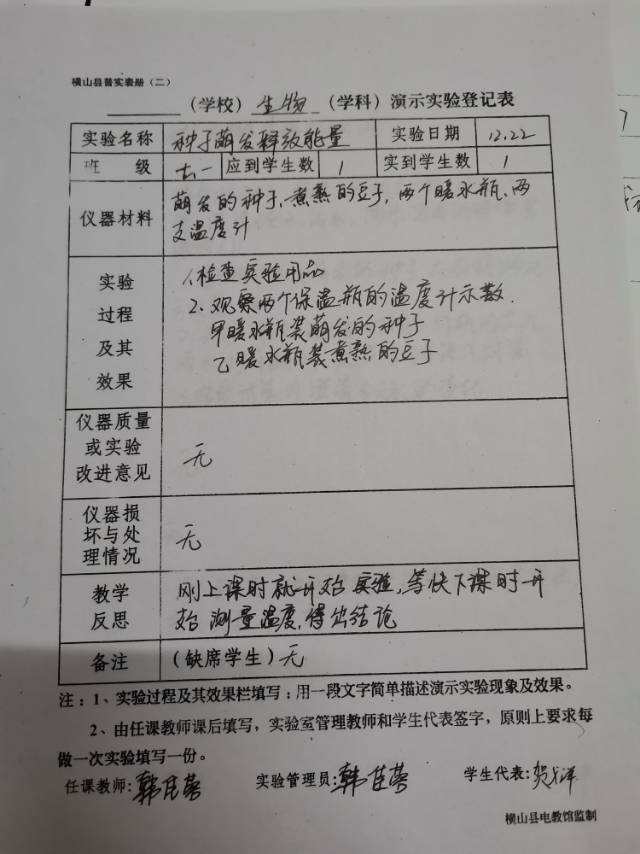 横山县普实表册（二）
（学校）生物（学科）演示实验登记表
实验名称 种子萌发释放能量 实验日期 12.22
班 级 七一 应到学生数 1 实到学生数 1
仪器材料 萌发的种子、煮熟的豆子，两个暖水瓶、两
支温度计
实验
过程
及其
效果
1、检查实验用品
2、观察两个保温瓶的温度计示数.
甲暖水瓶装萌发的种子
乙暖水瓶装煮熟的豆子
仪器质量
或实验
改进意见
无
仪器损
坏与处
理情况
无
教学
反思
刚上课时就开始实验，等快下课时开
始测量温度，得出结论
备注 （缺席学生）无
注：1、实验过程及其效果栏填写：用一段文字简单描述演示实验现象及效果。
2、由任课教师课后填写，实验室管理教师和学生代表签字，原则上要求每
做一次实验填写一份。
任课教师： 实验管理员： 学生代表：
横山县电教馆监制